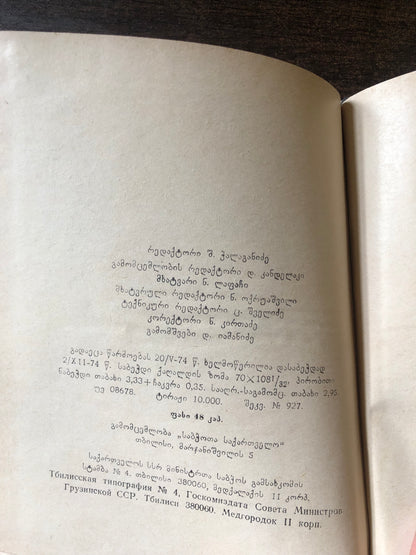 რედაქტორი შ. ქალაგანიძე
გამომცემლობის რედაქტორი დ. კანდელაკი
მხატვარი ნ. ლაფაჩი
მხატვრული რედაქტორი ნ. ოქრუაშვილი
ტექნიკური რედაქტორი ც. შველიძე
კორექტორი ნ. კირთაძე
გამომშვები დ. იამანიძე
გადაეცა წარმოებას 20/V-74 წ. ხელმოწერილია დასაბეჭდად
2/XII-74 წ. საბეჭდი ქაღალდის ზომა 70×108¹/₃₂. პირობითი
ნაბეჭდი თაბახი 3,33+ჩაკვრა 0,35. სააღრ.-საგამომც. თაბახი 2,95
უე 08678. ტირაჟი 10.000. შეკვ. № 927.
ფასი 48 კაპ.
გამომცემლობა „საბჭოთა საქართველო“
თბილისი, მარჯანიშვილის 5
საქართველოს სსრ მინისტრთა საბჭოს გამსახკომის
სტამბა № 4. თბილისი 380060, მედქალაქის II კორპ.
Тбилисская типография № 4, Госкомиздата Совета Министров
Грузинской ССР. Тбилиси 380060. Медгородок II корп.